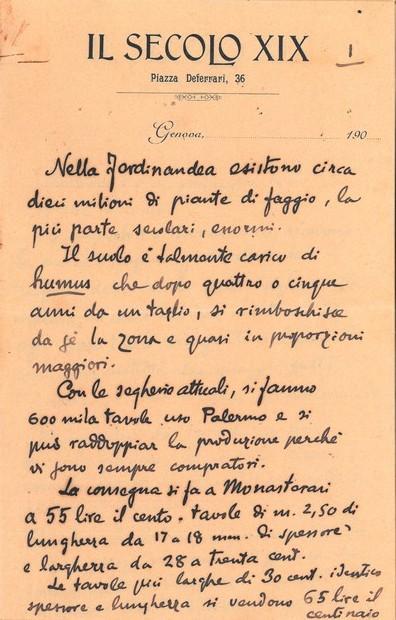 IL SECOLO XIX
1
Piazza Deferrari, 36
Genova, 190
Nella Ferdinandea esistono circa
dieci milioni di piante di faggio, la
più parte secolari, enormi.
Il suolo è talmente carico di
humus che dopo quattro o cinque
anni da un taglio, si rimboschisce
da sé la zona e quasi in proporzioni
maggiori.
Con le segherie attuali, si fanno
600 mila tavole uso Palermo e si
può raddoppiar la produzione perché
vi sono sempre compratori.
La consegna si fa a Monasterari
a 55 lire il cento. tavole di m. 2,50 di
lunghezza da 17 a 18 mm. di spessore
e larghezza da 28 a trenta cent.
Le tavole più larghe di 30 cent. identico
spessore e lunghezza si vendono 65 lire il
centinaio